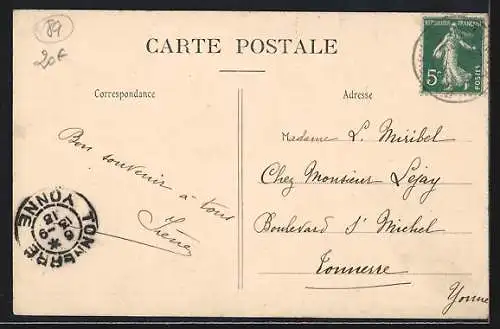 89
20€
CARTE POSTALE
Correspondance
Adresse
REPUBLIQUE FRANÇAISE
5c
POSTES
Bon souvenir à tous
Irène
Madame L. Miribel
Chez Monsieur Lejay
Boulevard St Michel
Tonnerre
Yonne
TONNERRE
YONNE